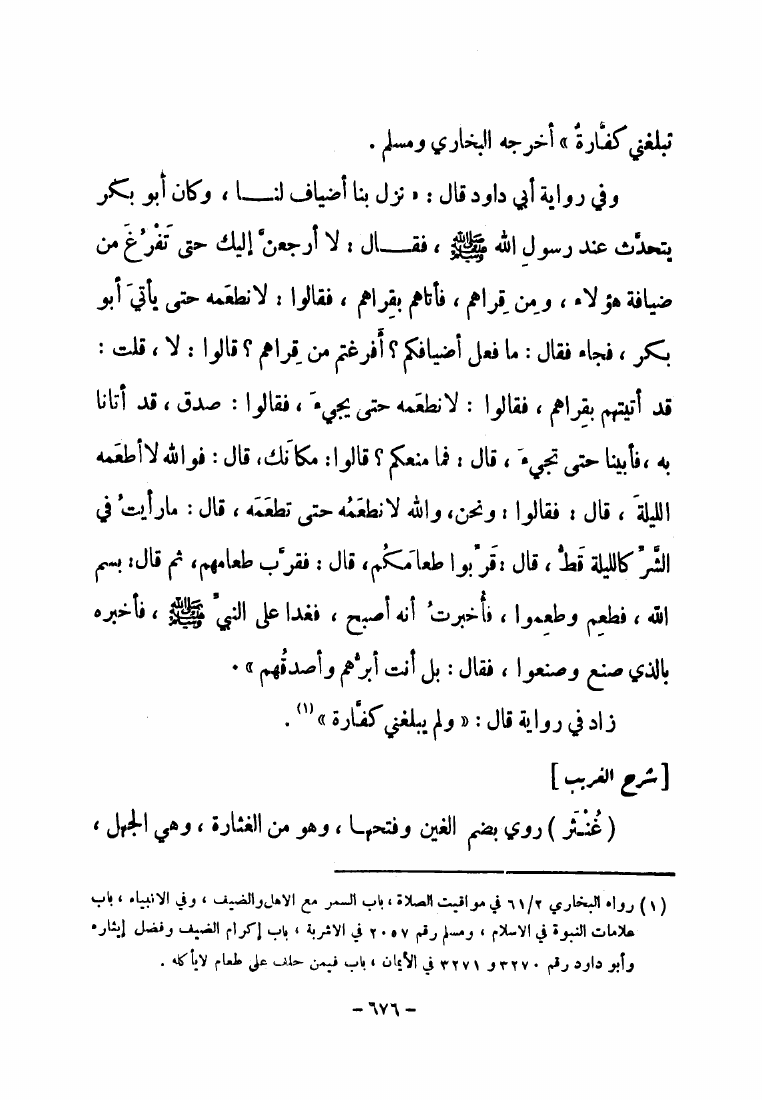 تبلغني كفَّارةٌ » أخرجه البخاري ومسلم .
وفي رواية أبي داود قال : « نزل بنا أضياف لنــا ، وكان أبو بكر
يتحدَّث عند رسولِ الله ﷺ ، فقــال : لا أرجعنَّ إليك حتى تَفْرُغَ من
ضيافة هؤلاء ، ومِن قِراهم ، فأتاهم بقِراهم ، فقالوا : لا نطعَمه حتى يأتيَ أبو
بكر ، فجاء فقال : ما فعل أضيافكم ؟ أَفرغتم من قِراهم ؟ قالوا : لا ، قلت :
قد أتيتهم بقِراهم ، فقالوا : لا نطعَمه حتى يجيءَ ، فقالوا : صدق ، قد أتانا
به ، فأبينا حتى تجيءَ ، قال : فما منعكم ؟ قالوا : مكانَك ، قال : فوالله لا أطعَمه
الليلةَ ، قال : فقالوا : ونحن، والله لا نطعَمُه حتى تطعَمَه ، قال : ما رأيتُ في
الشَّرِّ كالليلة قَطُّ ، قال : قَرِّبوا طعامَكُم، قال : فقرَّب طعامهم، ثم قال: بسم
الله ، فطعِم وطعِموا ، فأُخبرتُ أنه أصبح ، فغدا على النبيِّ ﷺ ، فأخبره
بالذي صنع وصنعوا ، فقال : بل أنت أبرُّهم وأصدقُهم » .
زاد في رواية قال : « ولم يبلغني كفَّارة » (١) .
[ شرح الغريب ]
( غُنْثَر ) روي بضم الغين وفتحهــا ، وهو من الغثارة ، وهي الجهل ،
(١) رواه البخاري ٦١/٢ في مواقيت الصلاة ، باب السمر مع الاهل والضيف ، وفي الانبياء ، باب
علامات النبوة في الاسلام ، ومسلم رقم ٢٠٥٧ في الاشربة ، باب إكرام الضيف وفضل إيثاره
وأبو داود رقم ٣٢٧٠ و ٣٢٧١ في الأيمان ، باب فيمن حلف على طعام لا يأكله .
- ٦٧٦ -